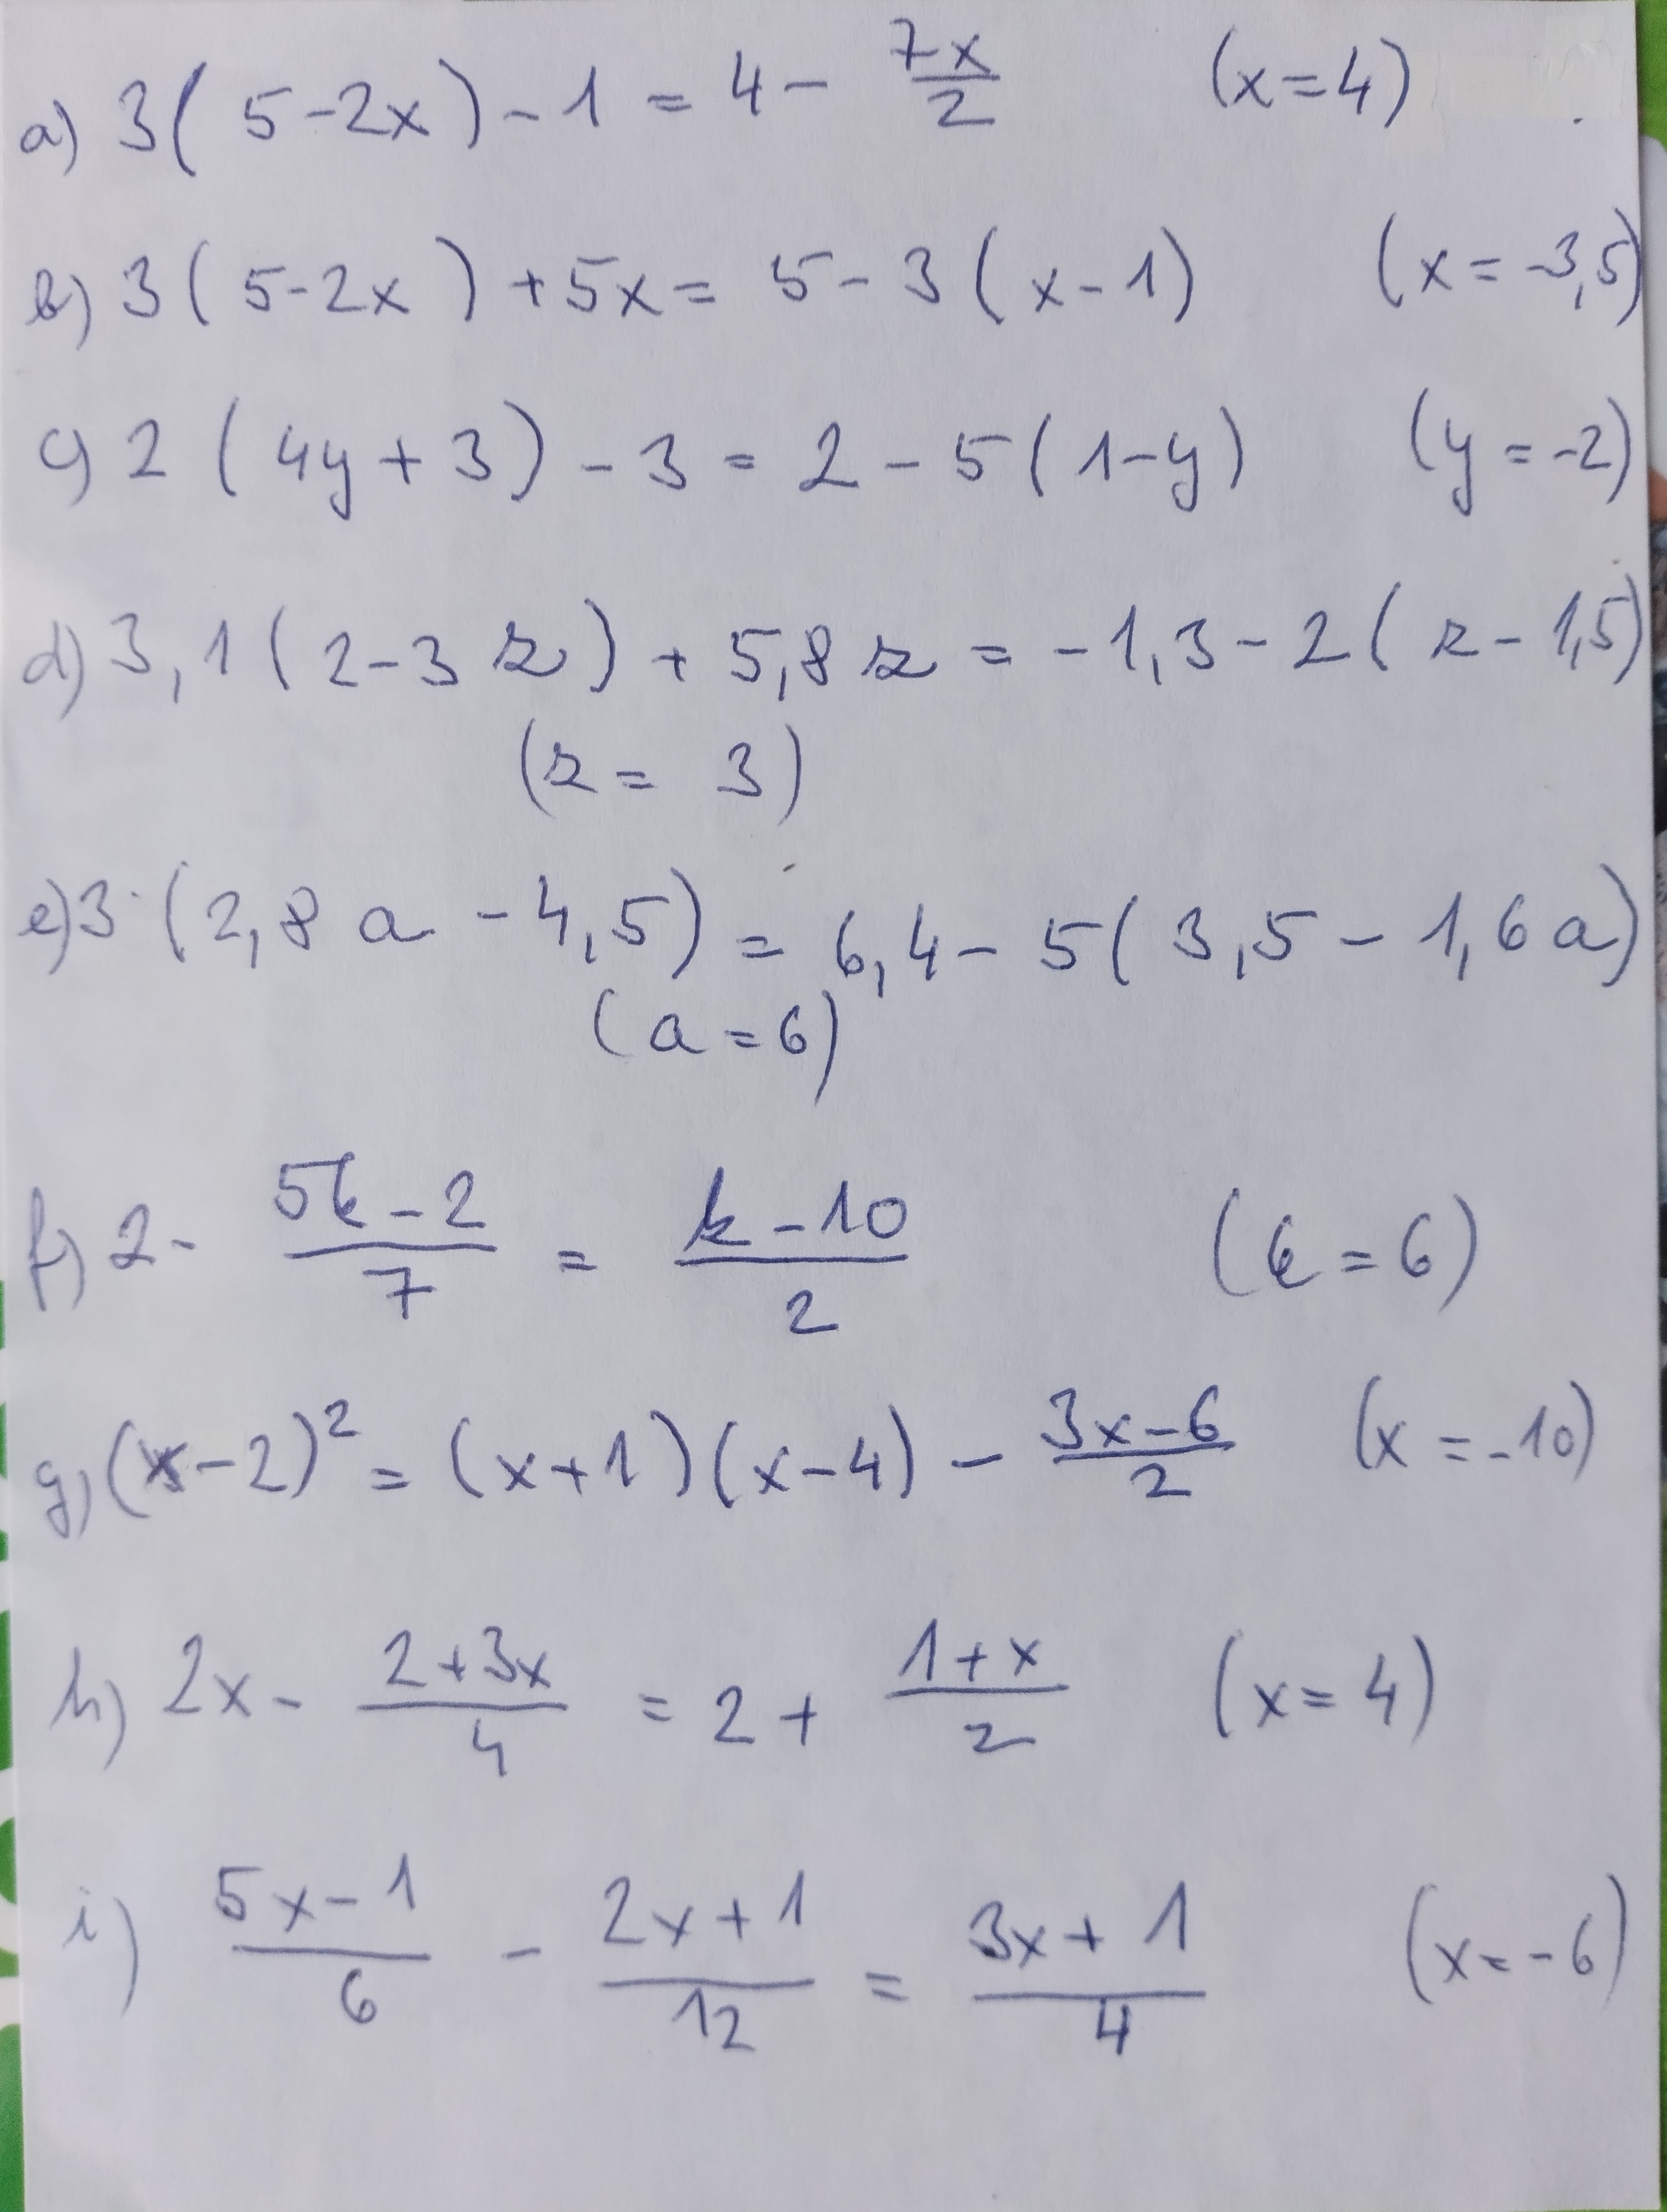 a) 3(5-2x)-1 = 4 - 7x/2 (x=4)
b) 3(5-2x)+5x = 5-3(x-1) (x=-3,5)
c) 2(4y+3)-3 = 2-5(1-y) (y=-2)
d) 3,1(2-3z)+5,8z = -1,3-2(z-1,5)
(z= 3)
e) 3·(2,8a-4,5) = 6,4-5(3,5-1,6a)
(a=6)
f) 2- (5k-2)/7 = (k-10)/2 (k=6)
g) (x-2)² = (x+1)(x-4) - (3x-6)/2 (x=-10)
h) 2x - (2+3x)/4 = 2 + (1+x)/2 (x=4)
i) (5x-1)/6 - (2x+1)/12 = (3x+1)/4 (x=-6)